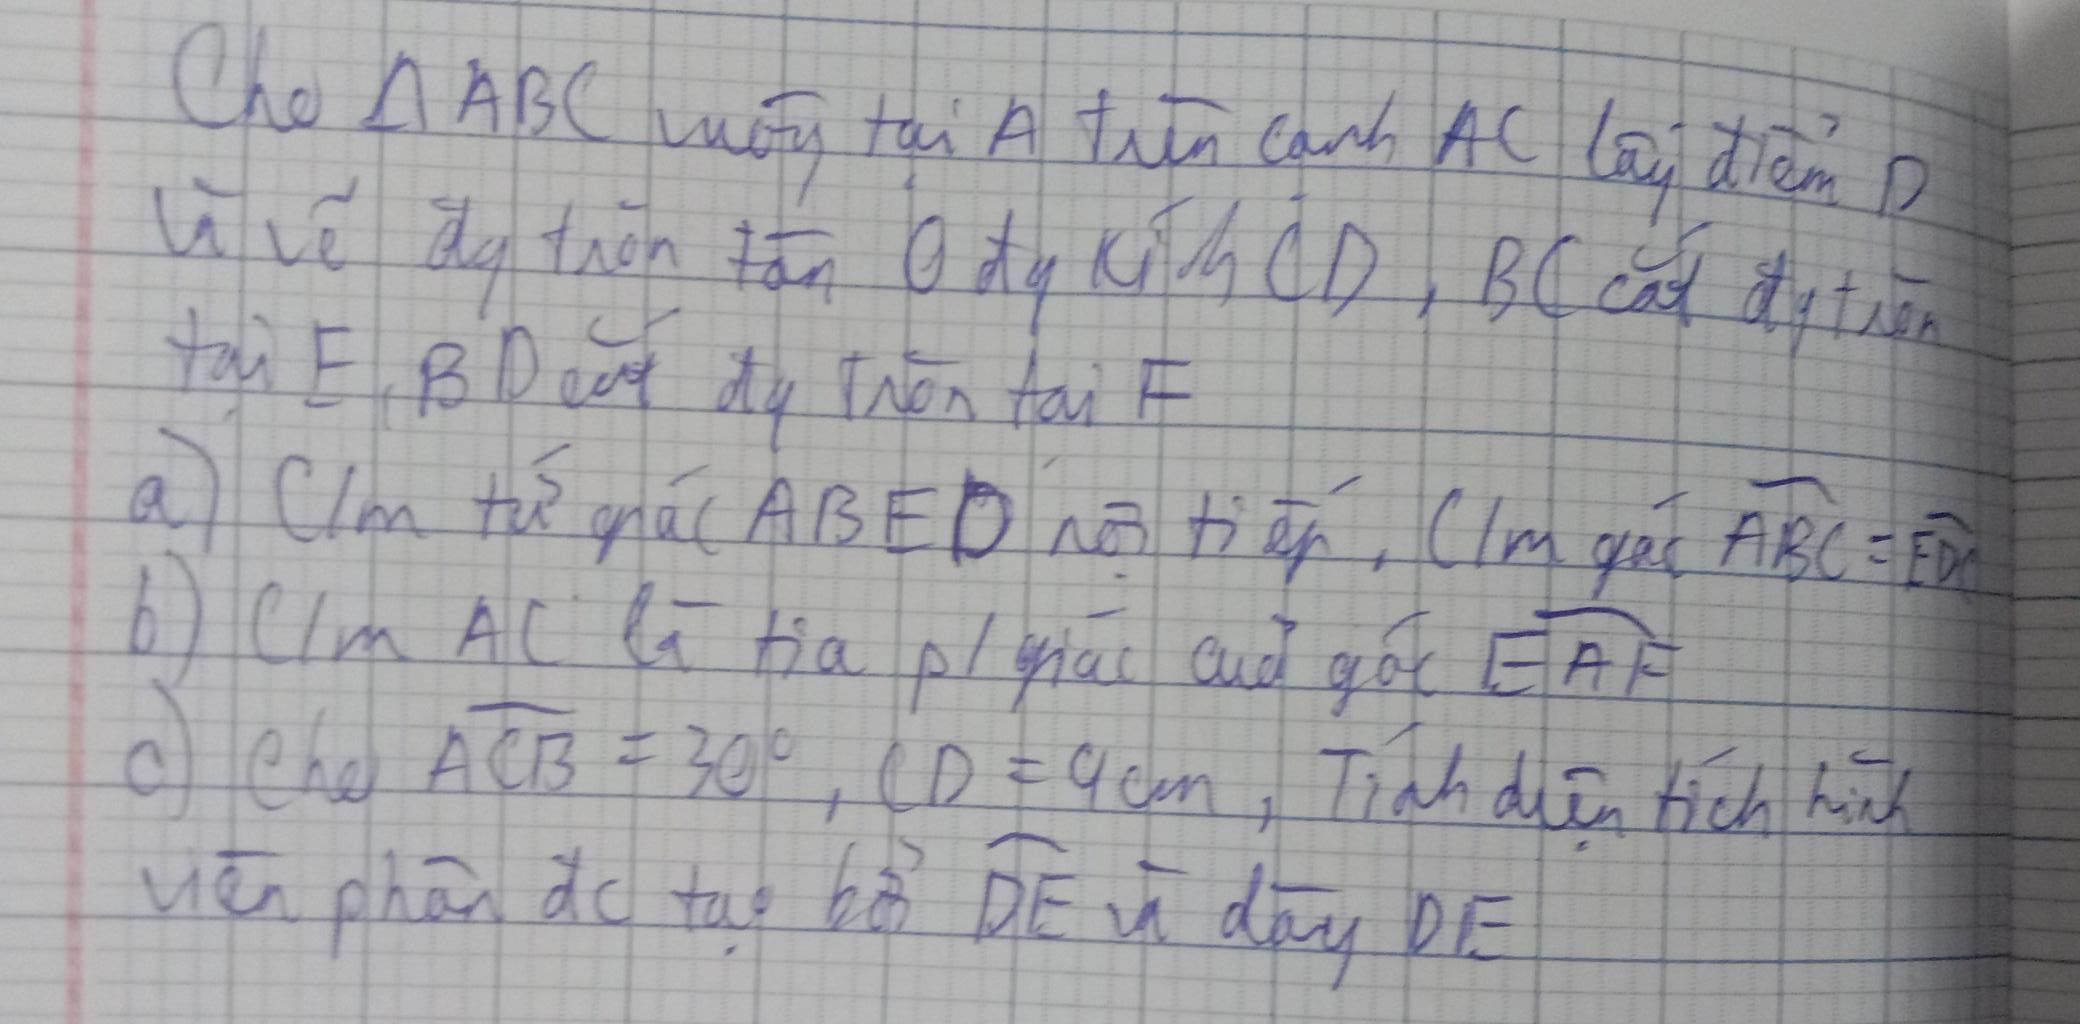 Cho Δ ABC vuông tại A trên cạnh AC lấy điểm D
và vẽ đg tròn tân O đg kính CD, BC cắt đg tròn
tại E, BD cắt đg tròn tại F
a) C/m tứ giác ABED nội tiếp, C/m góc ABC = EDC
b) C/m AC là tia p/giác cuả góc EAF
c) Cho ACB = 30°, CD = 4cm, Tính diện tích hình
viên phân đc tạo bởi DE và dây DE